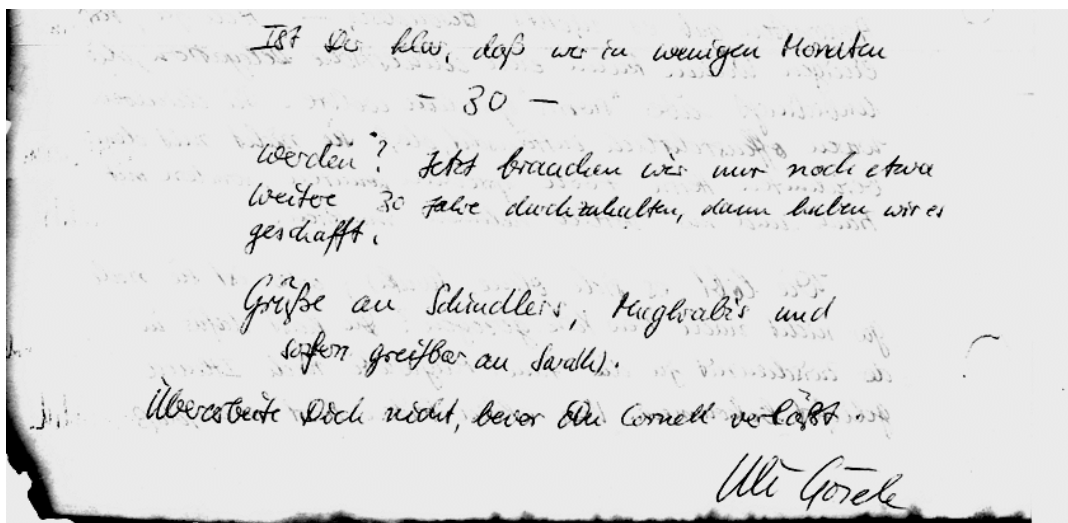 Ist Dir klar, daß wir in wenigen Monaten
- 30 -
werden? Jetzt brauchen wir nur noch etwa
weitere 30 Jahre durchzuhalten, dann haben wir es
geschafft.
Grüße an Schindlers, Mughrabi's und
sofern greifbar an Sarah).
Überarbeite Dich nicht, bevor Du Cornell verläßt.
Uli